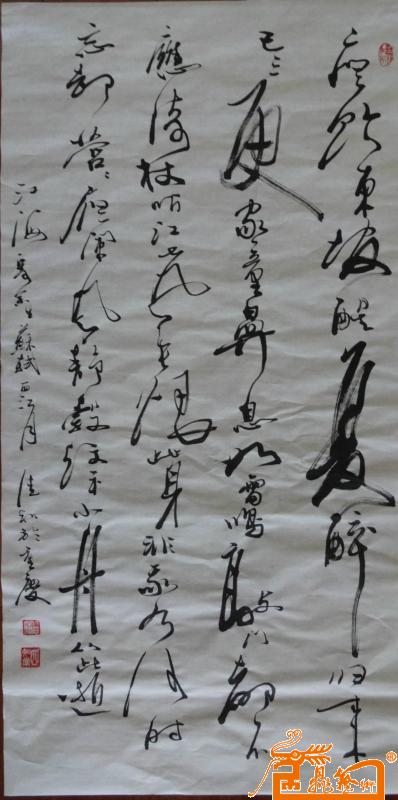 夜饮東坡醒復醉归来
已三更家童鼻息如雷鳴敲门都不
應倚杖听江声长恨此身非我有何时
忘却營々夜闌风静縠纹平小舟从此逝
江海寄余生 蘇軾西江月 於重慶